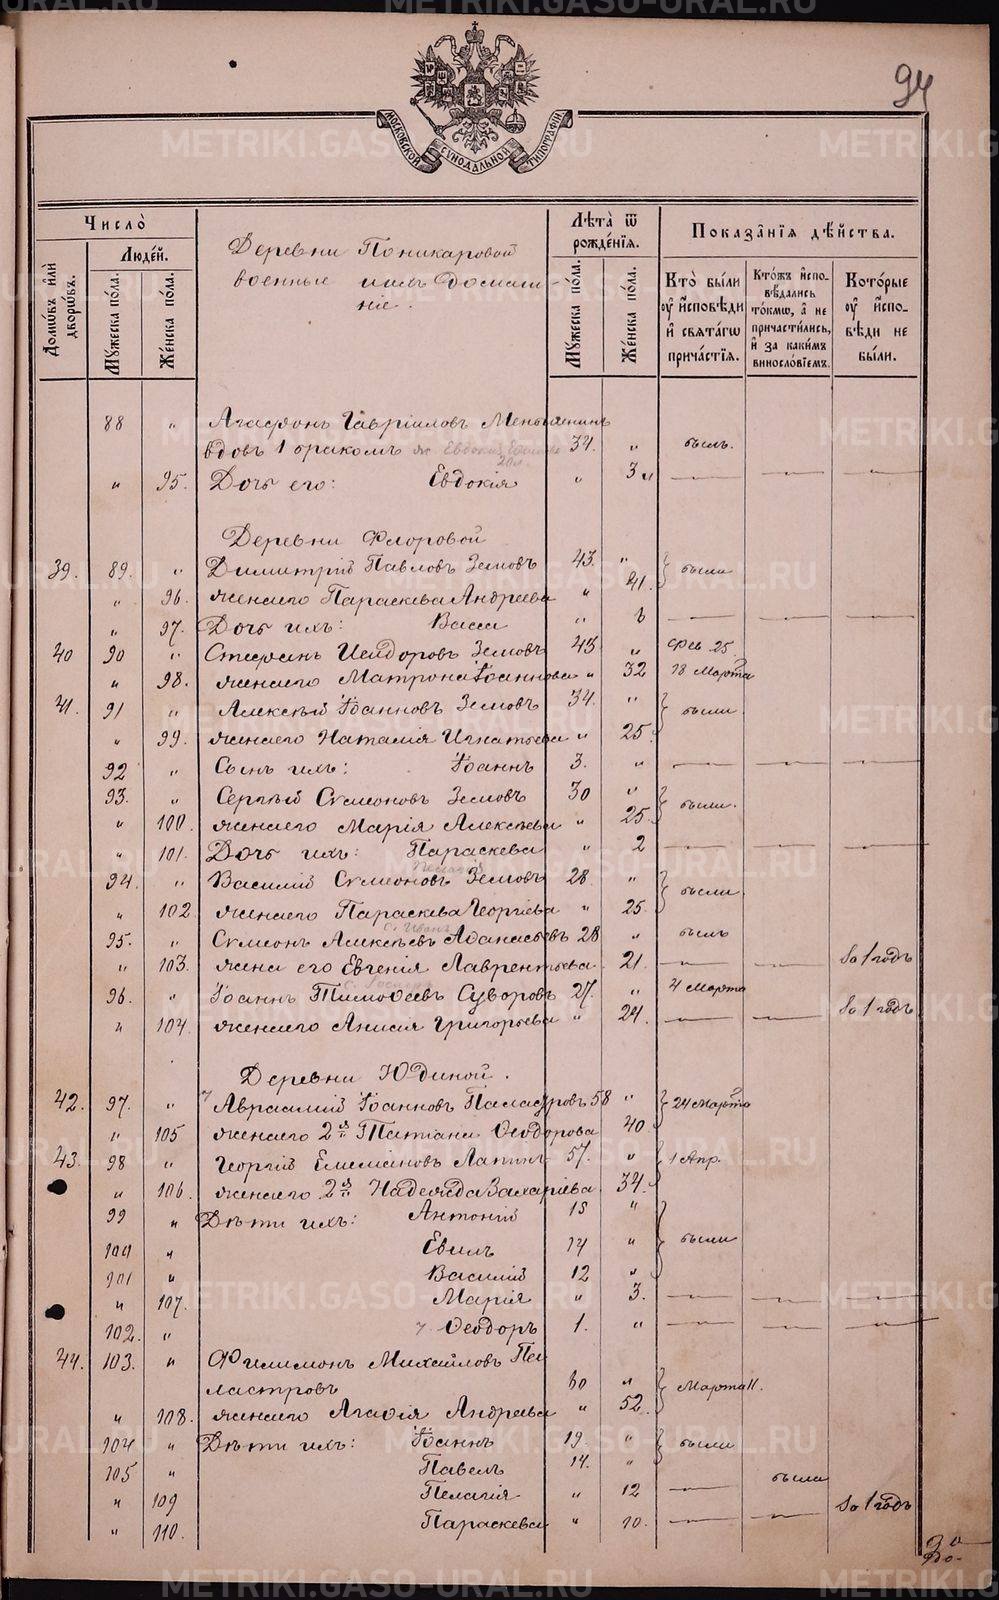 94
МОСКОВСКОЙ СѴНОДАЛЬНОЙ ТИПОГРАФІИ
Число̀
Домѡвъ и҆лѝ дворѡвъ.
Люде́й.
Мꙋ́жеска по́ла.
Же́нска по́ла.
Деревни Поникаровой
военные ихъ домаш-
ніе.
Лѣ̑та ѿ рожде́нїѧ.
Мꙋ́жеска по́ла.
Же́нска по́ла.
Показа̑нїѧ дѣ́йства.
Кто̀ бы́ли ᲂу҆ и҆́сповѣди и҆ свѧта́гѡ прича́стїѧ.
Кто́жъ и҆спо-вѣ́дались то́кмѡ, а҆ не причасти́лись, и҆ за каки́мъ винослѡ́вїемъ.
Кото́рые ᲂу҆ и҆́спо-вѣди не бы́ли.
88 " Агафонъ Гавріиловъ
вдовъ 1 бракомъ 34. " былъ.
" 95. Дочь его: Евдокія " 3 — — —
Деревни Флоровой
39. 89. " Димитрій Павловъ Земовъ 43. " были
" 96. жена его Параскева Андреева " 41.
" 97. Дочь ихъ: Васса " — — —
40 90 " Стефанъ Исидоровъ Земовъ 43 " Фев. 25.
" 98. жена его Матрона Іоаннова " 32 18 Марта
41. 91 " Алексѣй Іоанновъ Земовъ 34. " были
" 99. жена его Наталия Игнатьева " 25.
92 " Сынъ ихъ: Іоаннъ 3. " — — —
93. " Сергѣй Сѵмеоновъ Земовъ 30 " были.
" 100. жена его Марія Алексѣева " 25.
" 101. Дочь ихъ: Параскева " 2 — — —
94. " Василий Сѵмеоновъ Земовъ 28. " были
" 102. жена его Параскева Георгіева " 25.
95. " Сѵмеонъ Алексѣевъ Аѳанасьевъ 28 " былъ
" 103. жена его Евгенія Лаврентьева 21. — — до 1 годъ
96. " Іоаннъ Тимоѳеевъ Суворовъ 27. " 4 Марта
" 104. жена его Анисия Григорьева " 24. — — до 1 годъ
Деревни Юдиной.
42. 97. " Авраамий Іоанновъ 58 " 24 Марта
" 105 жена его 2й Татіана Ѳеодорова 40.
43. 98 " Георгій Емеліановъ Лапинъ 57. " 1 Апр.
" 106. жена его 2й Надежда Захаріева 34.
99 " Дѣти ихъ: Антоній 15 " были
100 " 14 "
101 " Василий 12 "
" 107. Марія " 3. — — —
102. " Ѳеодоръ 1. " — — —
44. 103. " Филимонъ Михайловъ
60 " Марта 11.
" 108. жена его Агафія Андреева " 52.
104 " Дѣти ихъ: Іоаннъ 19. " были
105 " Павелъ 14. "
" 109 Пелагія " 12 — была
" 110. Параскева " 10. — — до 1 годъ
METRIKI.GASO-URAL.RU